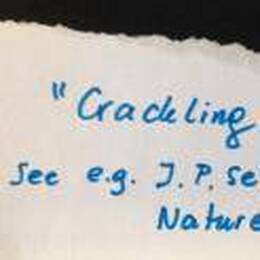 "Crackling
See e.g. J. P. Se
Nature